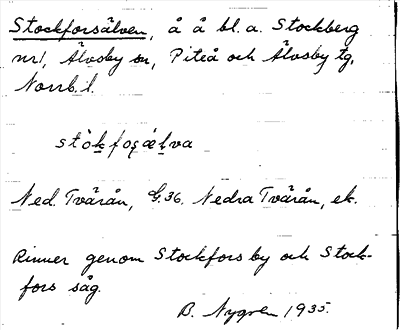 Stockforsälven, å å bl. a. Stockberg
nr 1, Älvsby sn, Piteå och Älvsby tg,
Norrb. l.
stòkfoṣæḷva
Ned. Tvärån, G. 36. Nedra Tvärån, ek.
Rinner genom Stockfors by och Stock-
fors såg.
B. Nygren 1935.